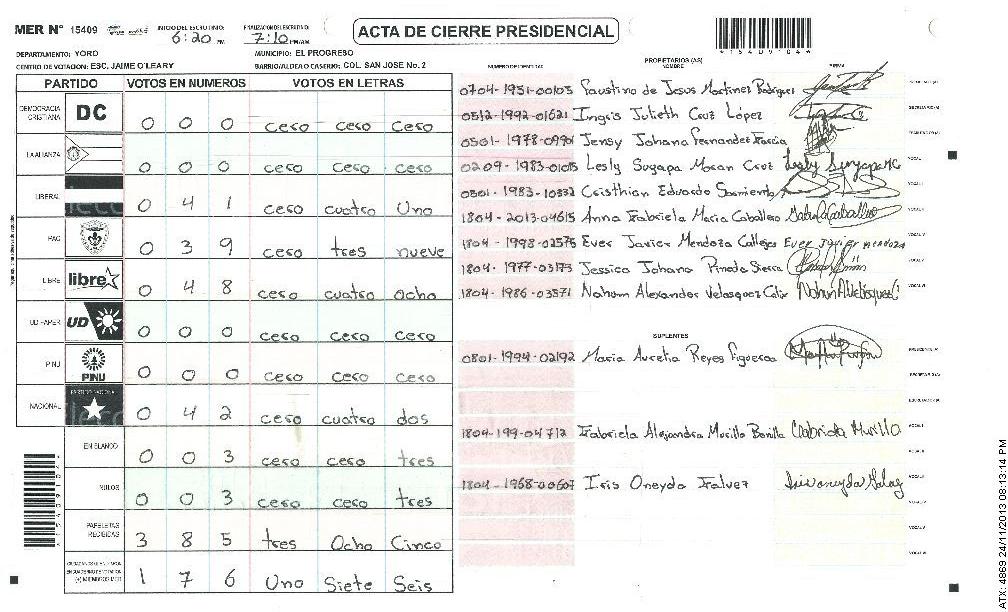 MER Nº 15409
INICIO DEL ESCRUTINIO: 6:20 PM
FINALIZACION DEL ESCRUTINIO: 7:10 PM/AM
ACTA DE CIERRE PRESIDENCIAL
DEPARTAMENTO: YORO
MUNICIPIO: EL PROGRESO
CENTRO DE VOTACION: ESC. JAIME O'LEARY
BARRIO/ALDEA O CASERIO: COL. SAN JOSE No. 2
PARTIDO VOTOS EN NUMEROS VOTOS EN LETRAS
DEMOCRACIA CRISTIANA DC 0 0 0 cero cero cero
LA ALIANZA 0 0 0 cero cero cero
LIBERAL 0 4 1 cero cuatro Uno
PAC 0 3 9 cero tres nueve
LIBRE libre 0 4 8 cero cuatro ocho
UD FAPER UD 0 0 0 cero cero cero
PINU PINU 0 0 0 cero cero cero
NACIONAL 0 4 2 cero cuatro dos
EN BLANCO 0 0 3 cero cero tres
NULOS 0 0 3 cero cero tres
PAPELETAS RECIBIDAS 3 8 5 tres Ocho Cinco
1 7 6 Uno Siete Seis
NUMERO DE IDENTIDAD PROPIETARIOS (AS) NOMBRE FIRMA
0704-1951-00105 Faustino de Jesus Martinez Rodriguez
0512-1992-01621 Ingris Julieth Cruz López
0501-1978-09901 Jensy Johana Fernandez Garcia
0209-1983-01015 Lesly Suyapa Moran Cruz
0501-1983-10332 Cristhian Eduardo Sarmiento
1804-2013-04615 Anna Gabriela Maria Caballero
1804-1998-02575 Ever Javier Mendoza Callejas Ever Javier Mendoza
1804-1977-03173 Jessica Johana Pineda Sierra
1804-1986-03571 Nahum Alexander Velasquez Calix
SUPLENTES
0801-1994-02192 Maria Aurelia Reyes Figueroa
1804-199-04712 Gabriela Alejandra Murillo Bonilla Gabriela Murillo
1804-1968-00607 Iris Oneyda Galvez
ATX: 4869 24/11/2013 08:13:14 PM